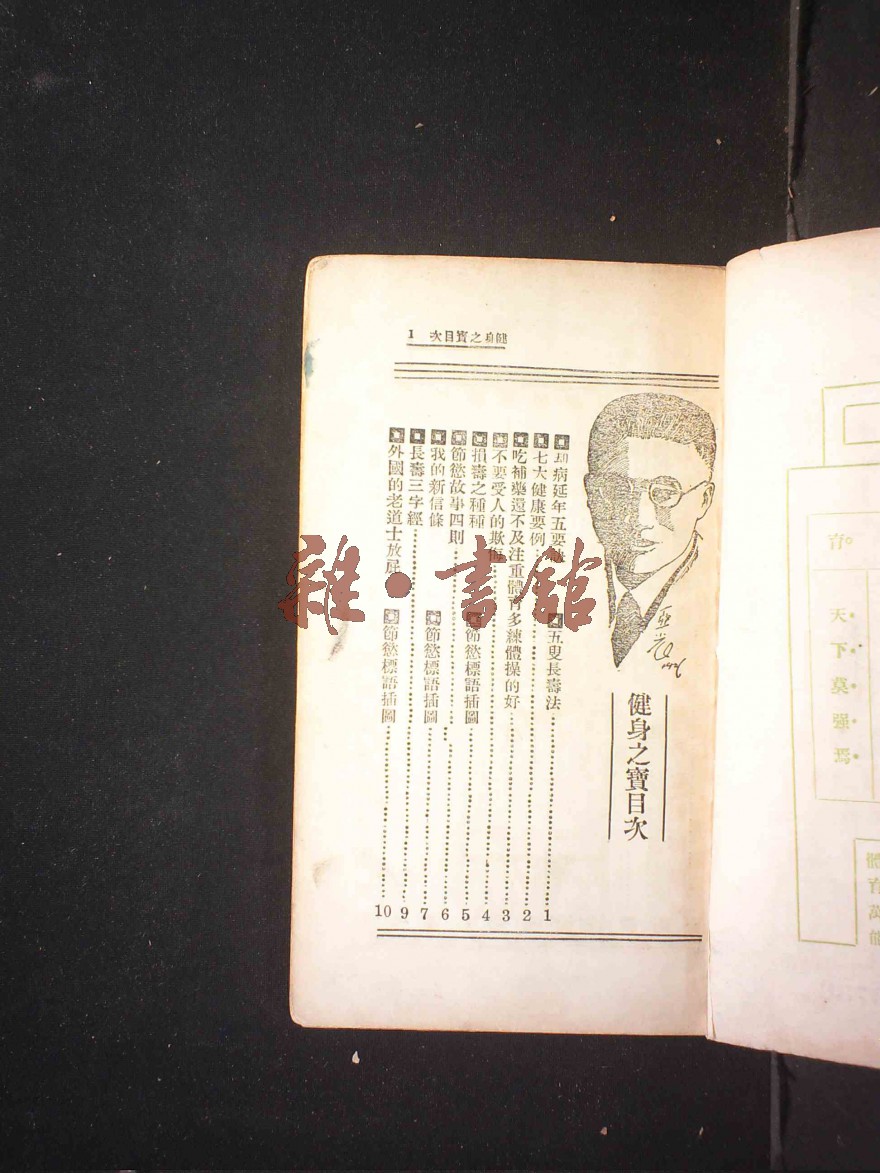 健身之寶目次 1
健身之寶目次
病延年五要 五叟長壽法 1
七大健康要例 2
吃補藥還不及注重體育多練體操的好 3
不要受人的欺侮 4
損壽之種種 節慾標語插圖 5
節慾故事四則 6
我的新信條 節慾標語插圖 7
長壽三字經 9
外國的老道士放屁 節慾標語插圖 10
亞光
雜·書館
育
天下莫强焉
體育萬能